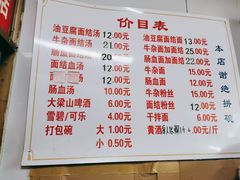 价目表
油豆腐面结汤 12.00元
牛杂面结汤 21.00元
肠血面结汤 20
面结汤 12.00元
面结血汤
肠血汤
大梁山啤酒 6.00元
雪碧/可乐 4.00元
打包碗 大 1.00元
小 0.50元
油豆腐面结面 13.00元
牛杂面加面结 25.00元
肠血面加面结 22.00元
牛杂面 15.00元
肠血面
牛杂粉丝 15.00元
面结粉丝 12.00元
干拌面 6.00元
黄酒 .00元/斤
本店谢绝拼砍
店